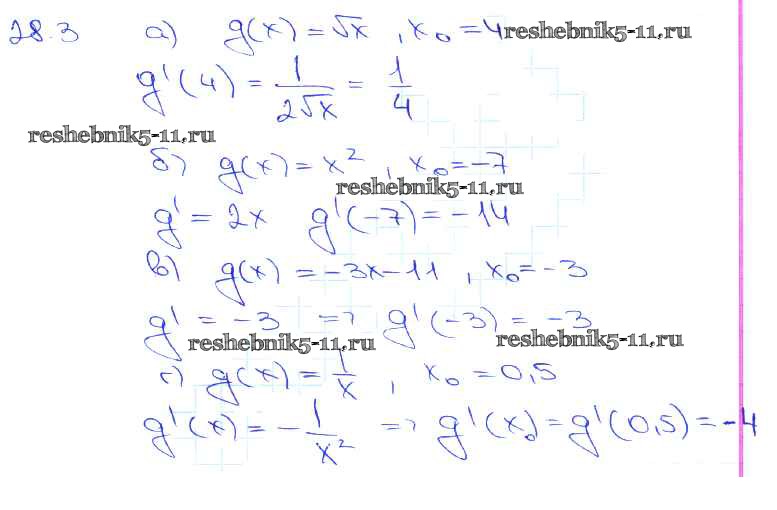 28.3 а) g(x) = √x , x₀ = 4 reshebnik5-11.ru
g'(4) = 1/(2√x) = 1/4
reshebnik5-11.ru
б) g(x) = x² , x₀ = -7
reshebnik5-11.ru
g' = 2x g'(-7) = -14
в) g(x) = -3x-11 , x₀ = -3
g' = -3 => g'(-3) = -3
reshebnik5-11.ru reshebnik5-11.ru
г) g(x) = 1/x , x₀ = 0,5
g'(x) = -1/x² => g'(x₀) = g'(0,5) = -4